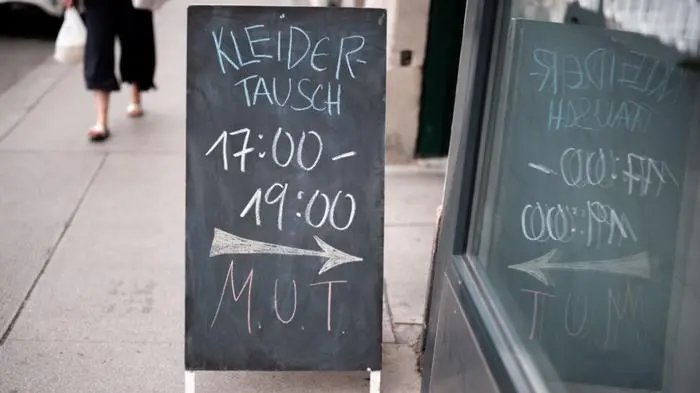 KLEIDER-
TAUSCH
17:00 –
19:00
M.U.T